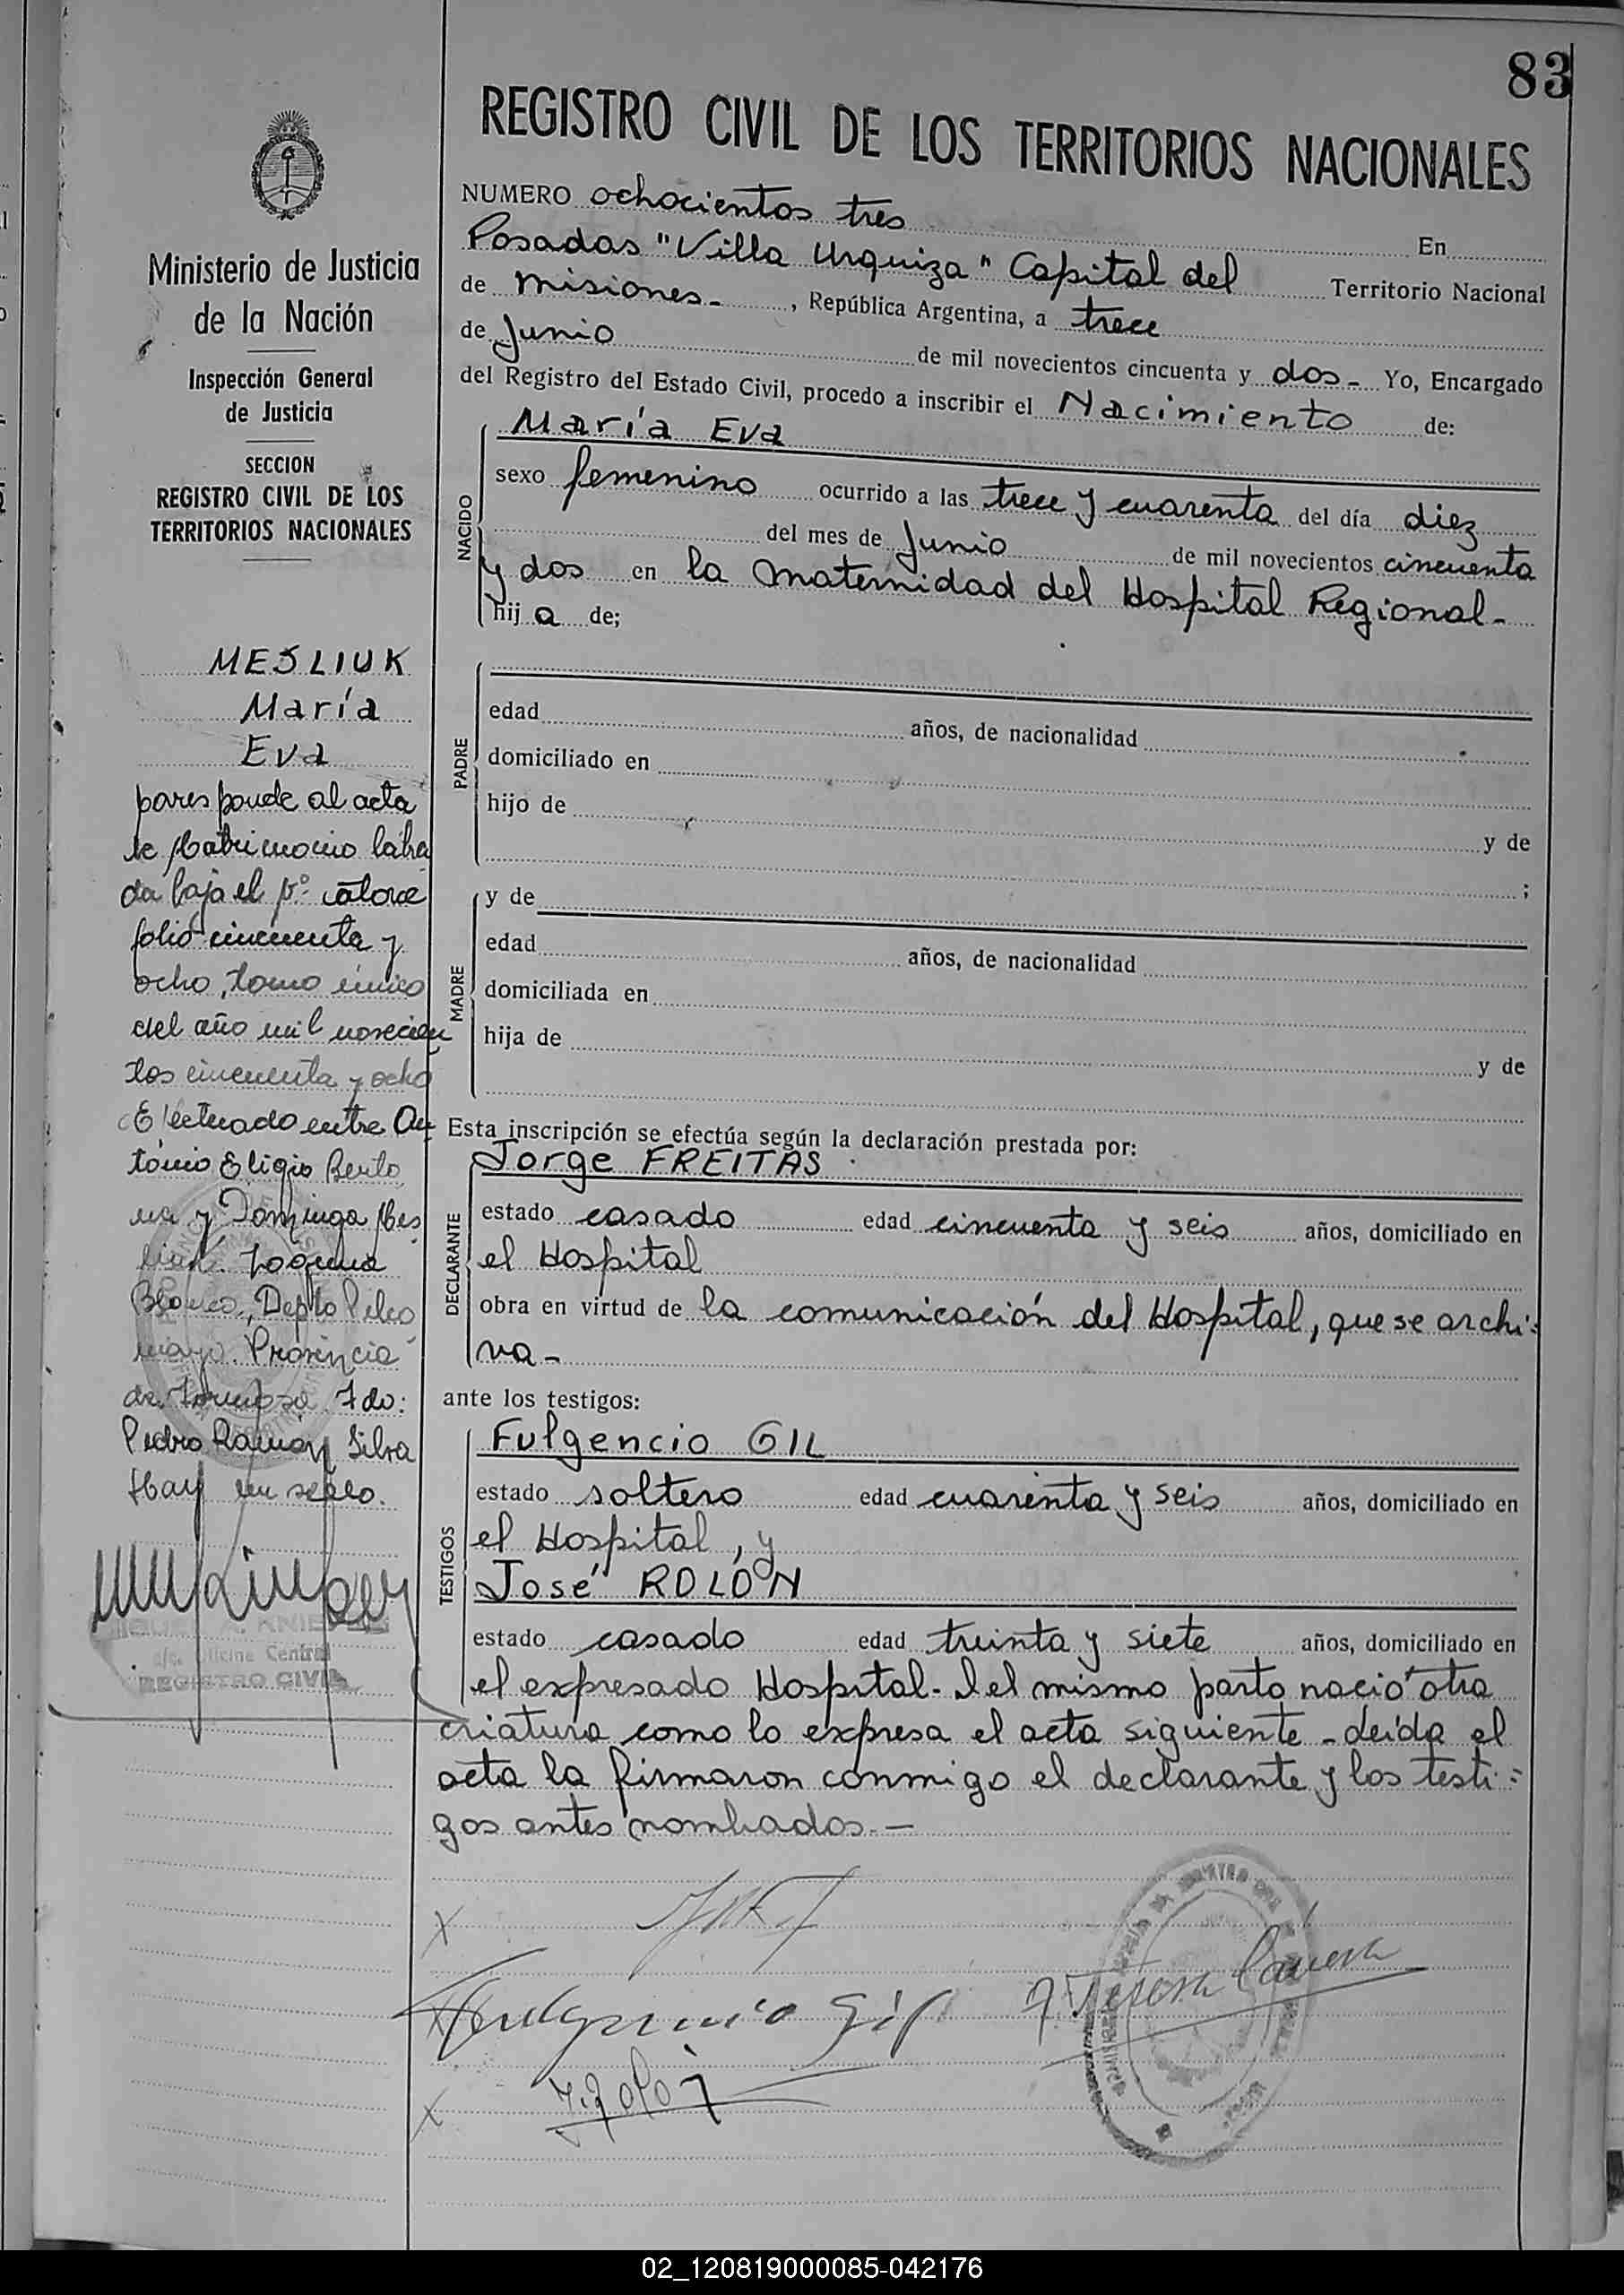 83
REGISTRO CIVIL DE LOS TERRITORIOS NACIONALES
Ministerio de Justicia
de la Nación
Inspección General
de Justicia
SECCION
REGISTRO CIVIL DE LOS
TERRITORIOS NACIONALES
MESLIUK
María
Eva
al acta
de Matrimonio labra
da bajo el Nº catorce
folio cincuenta y
ocho, tomo único
del año mil novecien
tos cincuenta y ocho
Efectuado entre An
tonio Eligio
y Dominga Mes
liuk. Laguna
Blanca, Depto Pilco
mayo. Provincia
de Formosa. Fdo:
Pedro Ramón Silva
Hay un sello.
Oficina Central
REGISTRO CIVIL
NUMERO ochocientos tres
En
Posadas "Villa Urquiza" Capital del Territorio Nacional
de Misiones-, República Argentina, a trece
de Junio de mil novecientos cincuenta y dos- Yo, Encargado
del Registro del Estado Civil, procedo a inscribir el Nacimiento de:
NACIDO
María Eva
sexo femenino ocurrido a las trece y cuarenta del día diez
del mes de Junio de mil novecientos cincuenta
y dos en la Maternidad del Hospital Regional-
hij a de;
PADRE
edad años, de nacionalidad
domiciliado en
hijo de
y de
;
MADRE
y de
edad años, de nacionalidad
domiciliada en
hija de
y de
Esta inscripción se efectúa según la declaración prestada por:
DECLARANTE
Jorge FREITAS
estado casado edad cincuenta y seis años, domiciliado en
el Hospital
obra en virtud de la comunicación del Hospital, que se archi=
va-
ante los testigos:
TESTIGOS
Fulgencio GIL
estado soltero edad cuarenta y seis años, domiciliado en
el Hospital, y
José ROLÓN
estado casado edad treinta y siete años, domiciliado en
el expresado Hospital- Del mismo parto nació otra
criatura como lo expresa el acta siguiente - Leída el
acta la firmaron conmigo el declarante y los testi=
gos antes nombrados.-
Fulgencio Gil
J. Rolón
02_120819000085-042176